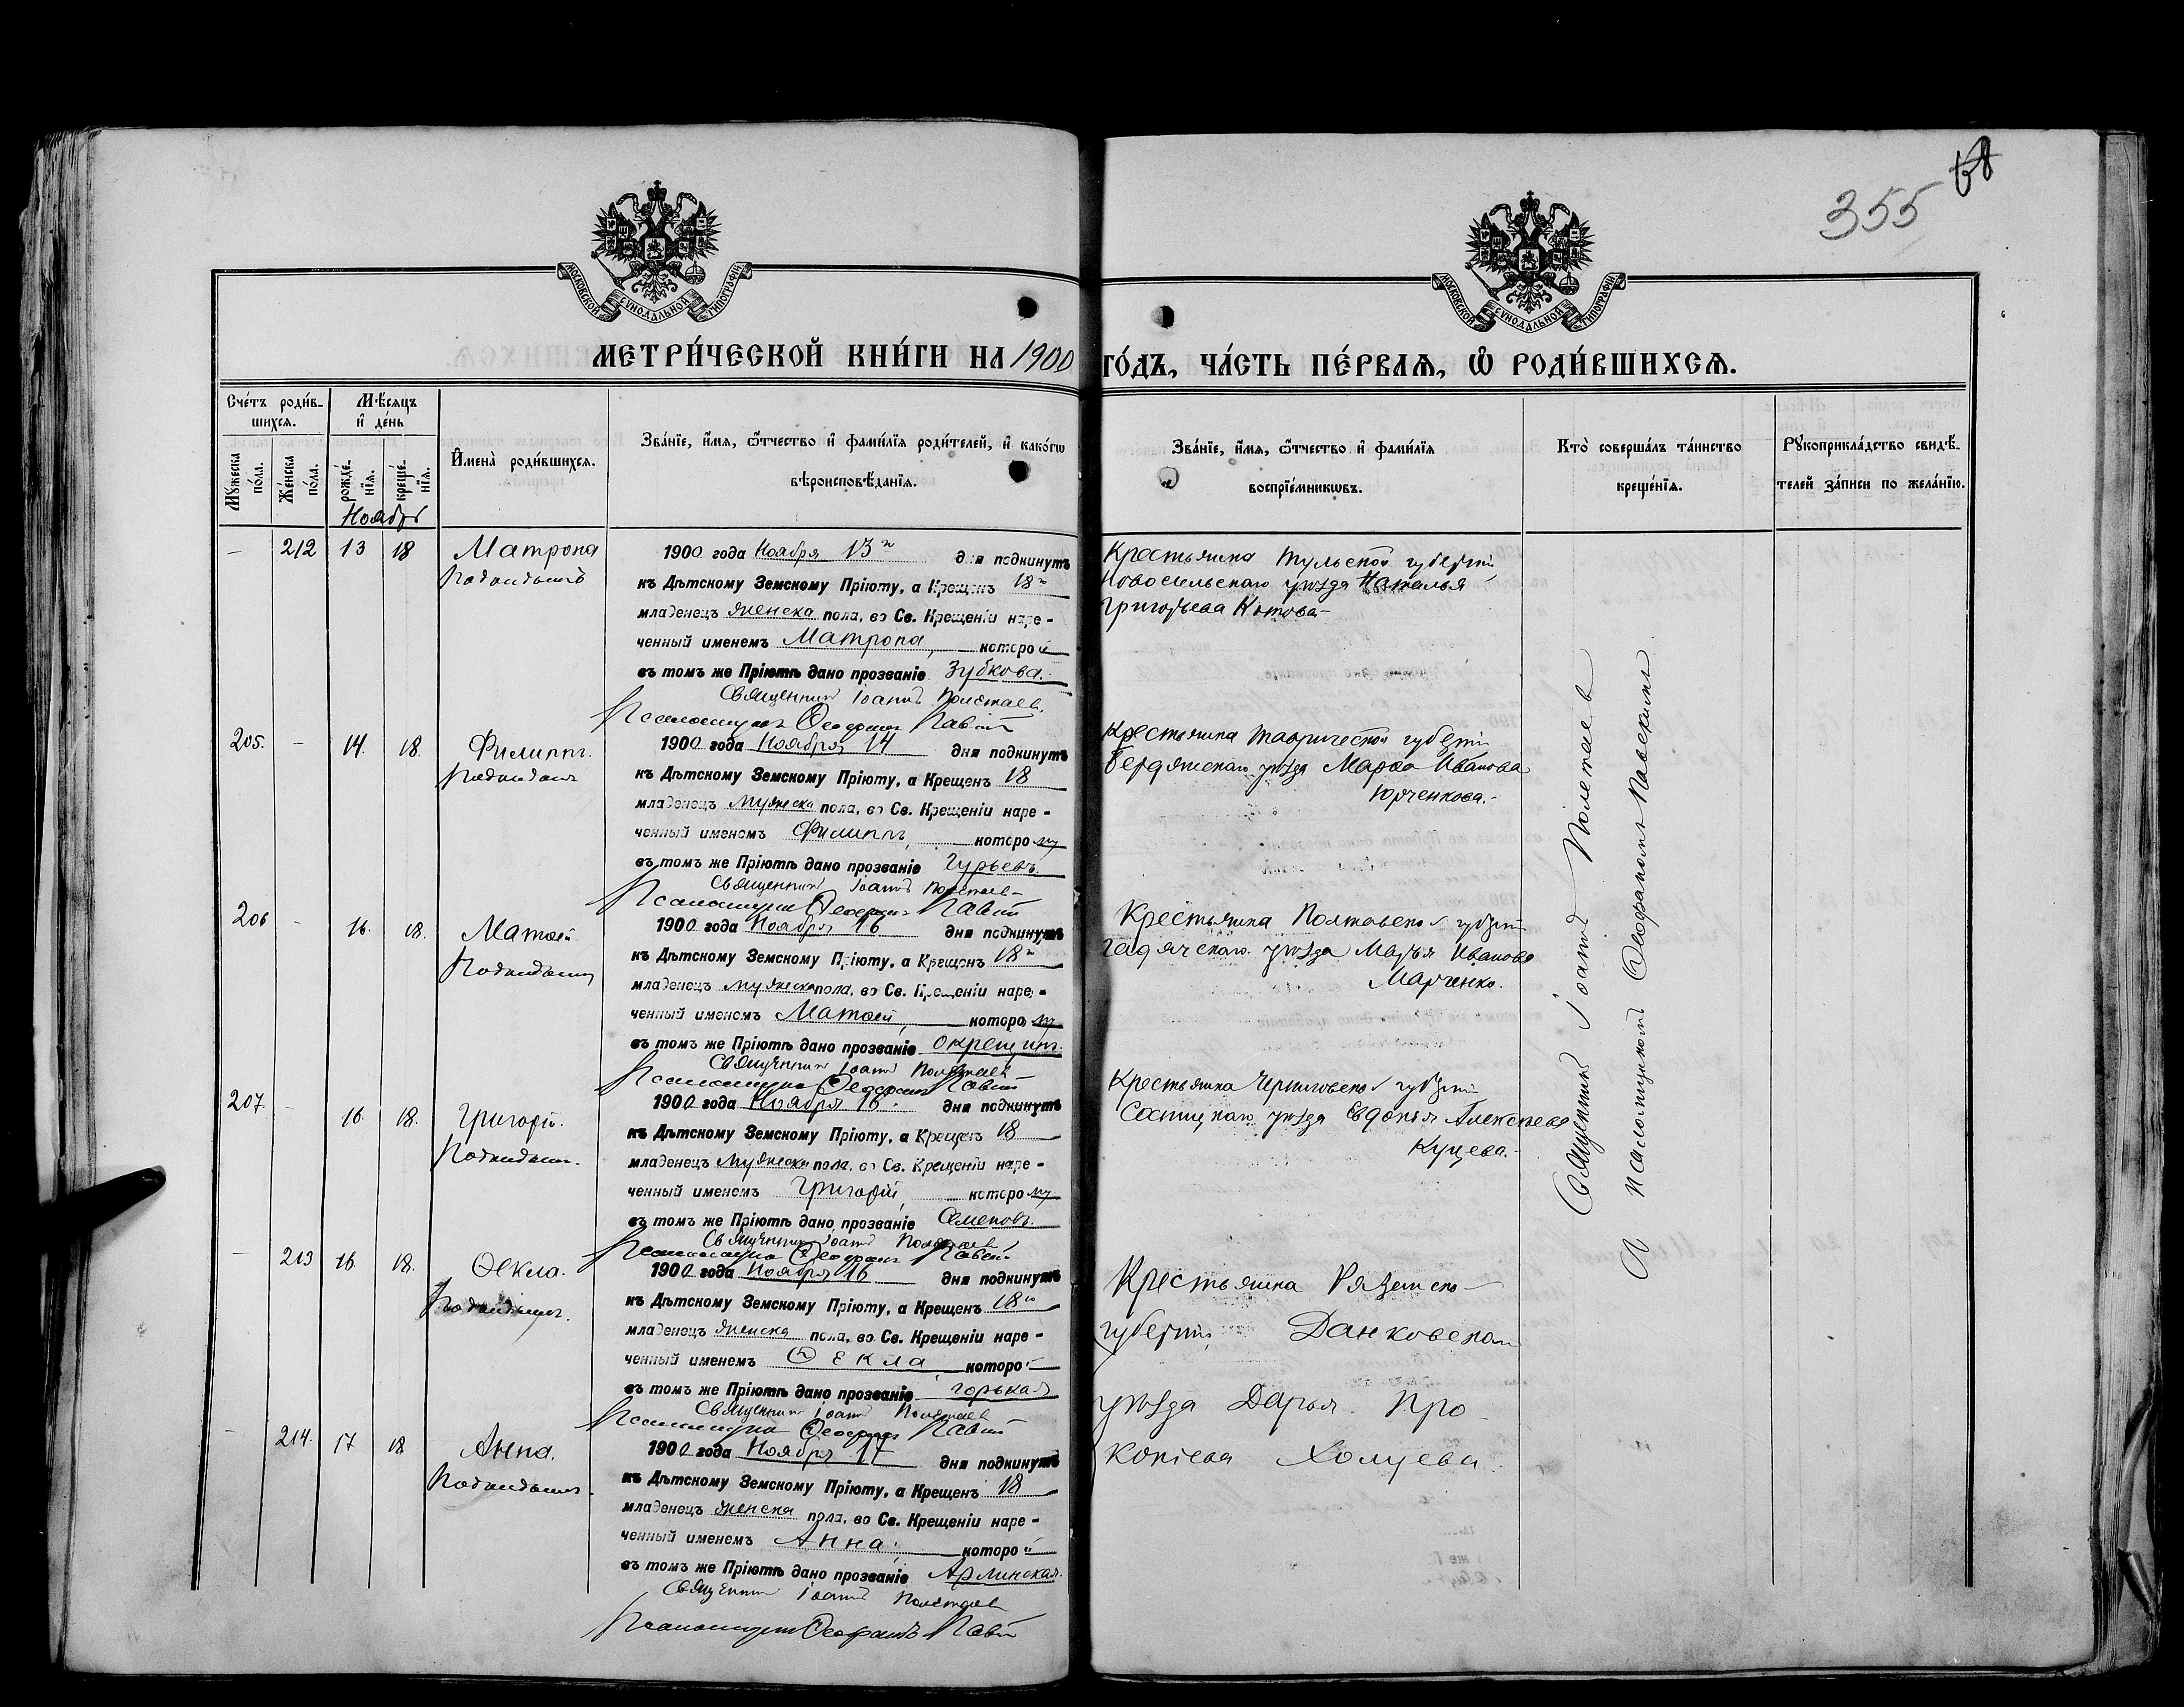 68
355
МОСКОВСКОЙ СУНОДАЛЬНОЙ ТИПОГРАФІИ
МОСКОВСКОЙ СУНОДАЛЬНОЙ ТИПОГРАФІИ
МЕТРИ́ЧЕСКОЙ КНИ́ГИ НА 1900 ГО́ДЪ, ЧА́СТЬ ПЕ́РВАЯ, Ѡ҆ РОДИ́ВШИХСЯ.
Сче́тъ роди́в-
шихся.
Мꙋ́жеска по́ла.
Же́нска по́ла.
Мѣ́сяцъ
и҆ де́нь
рожде́-
нїя.
креще́-
нїя.
Ноябрь
И҆мена̀ роди́вшихся.
Зва́нїе, и҆́мя, ѻ҆́тчество и҆ фами́лїя роди́телей, и҆ како́гѡ
вѣроисповѣ́данїя.
Зва́нїе, и҆́мя, ѻ҆́тчество и҆ фами́лїя
воспрїе́мникѡвъ.
Кто̀ соверша́лъ та́инство
креще́нїя.
Рꙋкоприкла́дство свидѣ́-
телей за́писи по жела́нїю.
— 212 13 18 Матрона
Подкидышъ
1900 года Ноября 13го дня подкинутъ
къ Дѣтскому Земскому Пріюту, а Крещенъ 18го
младенецъ женска пола, во Св. Крещеніи наре-
ченный именемъ Матрона, которой
въ томъ же Пріютѣ дано прозваніе Зубкова.
Священникъ Іоаннъ Полетаев
Псаломщикъ Ѳеофанъ Павс
Крестьянка Тульской губерніи
Новосильскаго уѣзда Наталья
Григорьева Котова-
205. - 14. 18. Филиппъ.
Подкидышъ
1900 года Ноября 14 дня подкинутъ
къ Дѣтскому Земскому Пріюту, а Крещен 18
младенецъ мужеска пола, во Св. Крещеніи наре-
ченный именемъ Филиппъ, которому
въ томъ же Пріютѣ дано прозваніе Гурьевъ.
Священникъ Іоаннъ Полетаев
Псаломщикъ Ѳеофанъ Павс
Крестьянка Таврической губерніи
Бердянскаго уѣзда Марѳа Иванова
Юрченкова.-
206 - 16. 18. Матѳей
Подкидышъ
1900 года Ноября 16 дня подкинутъ
къ Дѣтскому Земскому Пріюту, а Крещенъ 18го
младенецъ мужеска пола, во Св. Крещеніи наре-
ченный именемъ Матѳей, которому
въ томъ же Пріютѣ дано прозваніе
Священникъ Іоаннъ Полетаев
Псаломщикъ Ѳеофанъ Павс
Крестьянка Полтавской губерніи
Гадячскаго уѣзда Марья Иванова
Марченко.
207. - 16. 18. Григорій.
Подкидышъ.
1900 года Ноября 16. дня подкинутъ
къ Дѣтскому Земскому Пріюту, а Крещенъ 18
младенецъ мужеска пола, во Св. Крещеніи наре-
ченный именемъ Григорій, которому
въ томъ же Пріютѣ дано прозваніе Семеновъ.
Священникъ Іоаннъ Полетаев
Псаломщикъ Ѳеофанъ Павс
Крестьянка Черниговской губерніи
Сосницкаго уѣзда Евдокія Алексѣева
Куцева.-
— 213 16. 18. Ѳекла.
Подкидышъ.
1900 года Ноября 16 дня подкинутъ
къ Дѣтскому Земскому Пріюту, а Крещенъ 18го
младенецъ женска пола, во Св. Крещеніи наре-
ченный именемъ Ѳекла которой
въ томъ же Пріютѣ дано прозваніе Горькая
Священникъ Іоаннъ Полетаев
Псаломщикъ Ѳеофанъ Павс
Крестьянка Рязанско
губерніи, Данковскаго
уѣзда Дарья Про
копіева Холцева.
- 214. 17 18 Анна.
Подкидышъ.
1900 года Ноября 17 дня подкинутъ
къ Дѣтскому Земскому Пріюту, а Крещенъ 18
младенецъ женска пола, во Св. Крещеніи наре-
ченный именемъ Анна, которой
въ томъ же Пріютѣ дано прозваніе Арлинская.
Священникъ Іоаннъ Полетаев
Псаломщикъ Ѳеофанъ Павс
Священникъ Іоаннъ Полетаев
псаломщикомъ Ѳеофаномъ Павскимъ